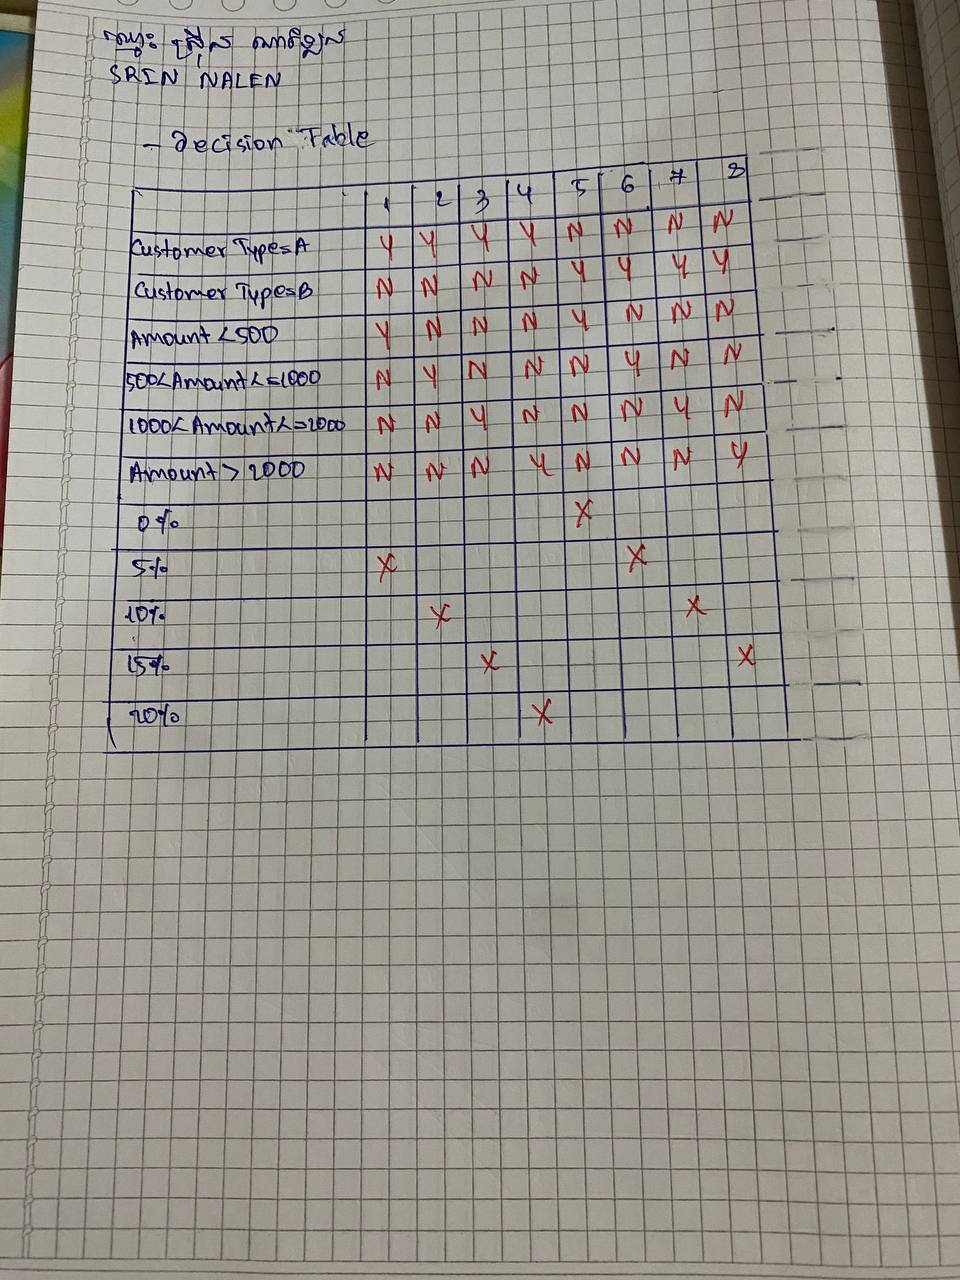 ឈ្មោះ ស្រ៊ីន ណាឡែន
SRIN NALEN
- Decision Table
1 2 3 4 5 6 7 8
Customer Type=A Y Y Y Y N N N N
Customer Type=B N N N N Y Y Y Y
Amount <500 Y N N N Y N N N
500<Amount<=1000 N Y N N N Y N N
1000<Amount<=2000 N N Y N N N Y N
Amount > 2000 N N N Y N N N Y
0% X
5% X X
10% X X
15% X X
20% X